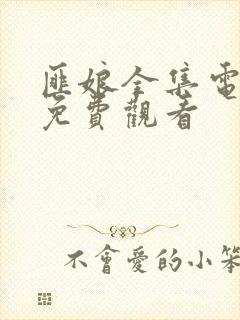 匪娘全集電
免費觀看
不會愛的小笨